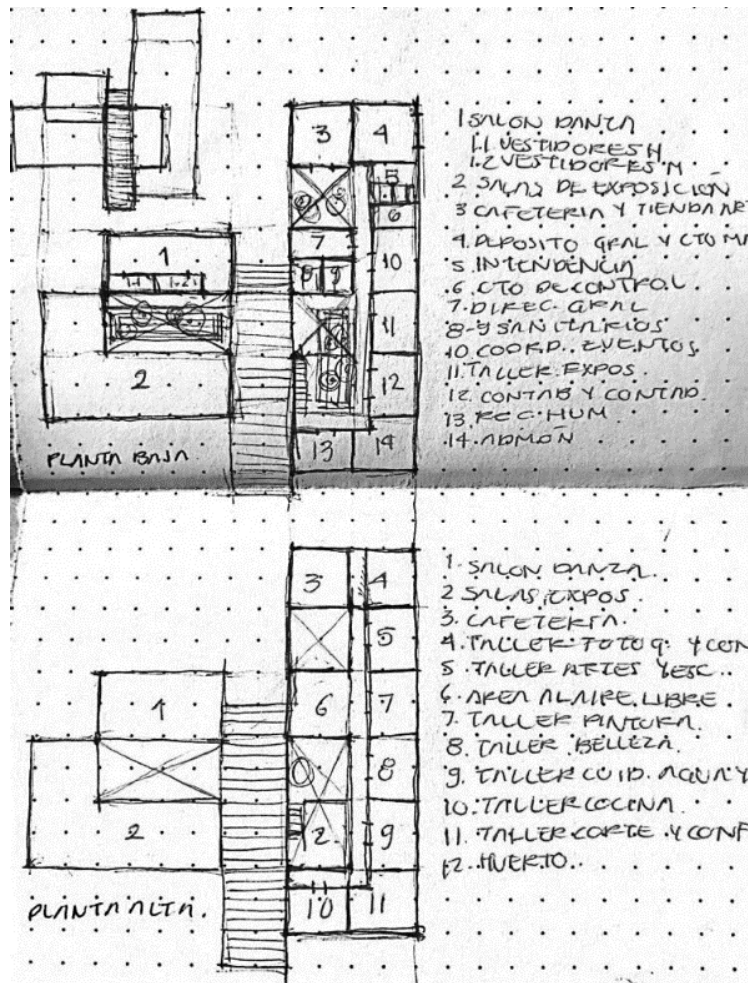 1 SALON DANZA
1.1 VESTIDORES H
1.2 VESTIDORES M
2 SALAS DE EXPOSICIÓN
3 CAFETERIA Y TIENDA
4. DEPOSITO GRAL Y CTO
5 INTENDENCIA
6 CTO DE CONTROL
7 DIREC. GRAL
8-9 SANITARIOS
10 COORD. EVENTOS
11 TALLER EXPOS.
12 CONTAB Y CONTAD.
13 REC. HUM
14 ADMÓN
3
4
5
6
7
8
9
10
11
12
13
14
1
1.1
1.2
2
PLANTA BAJA
1. SALON DANZA.
2 SALAS EXPOS.
3. CAFETERIA.
4. TALLER FOTOG. Y CON
5. TALLER ARTES Y ESC.
6. AREA AL AIRE LIBRE.
7. TALLER PINTURA.
8. TALLER BELLEZA.
9. TALLER CUID. AGUA Y
10. TALLER COCINA.
11. TALLER CORTE Y CONF
12. HUERTO.
3
4
5
6
7
8
9
10
11
1
2
PLANTA ALTA.